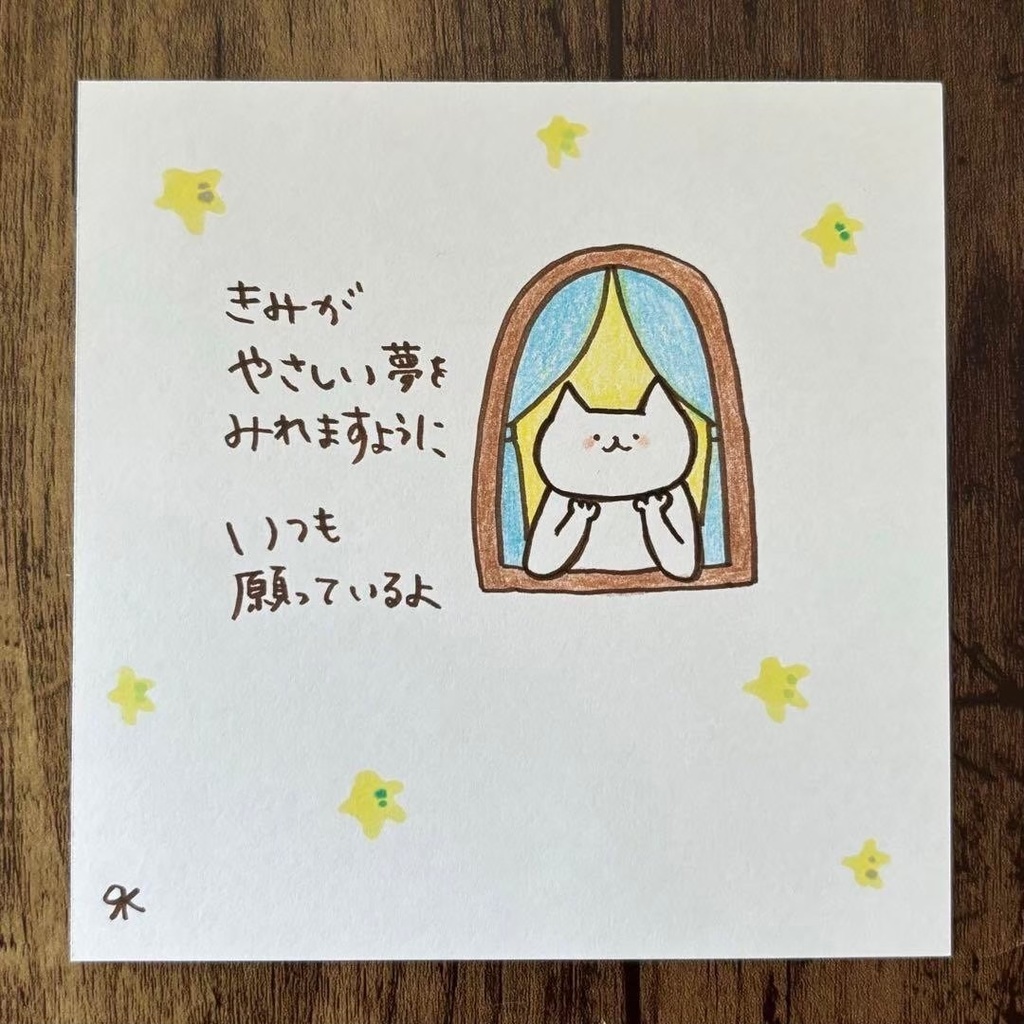 きみが
やさしい夢を
みれますように
いつも
願っているよ